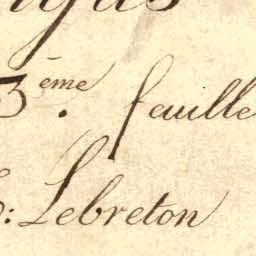 3ème. feuille
: Lebreton